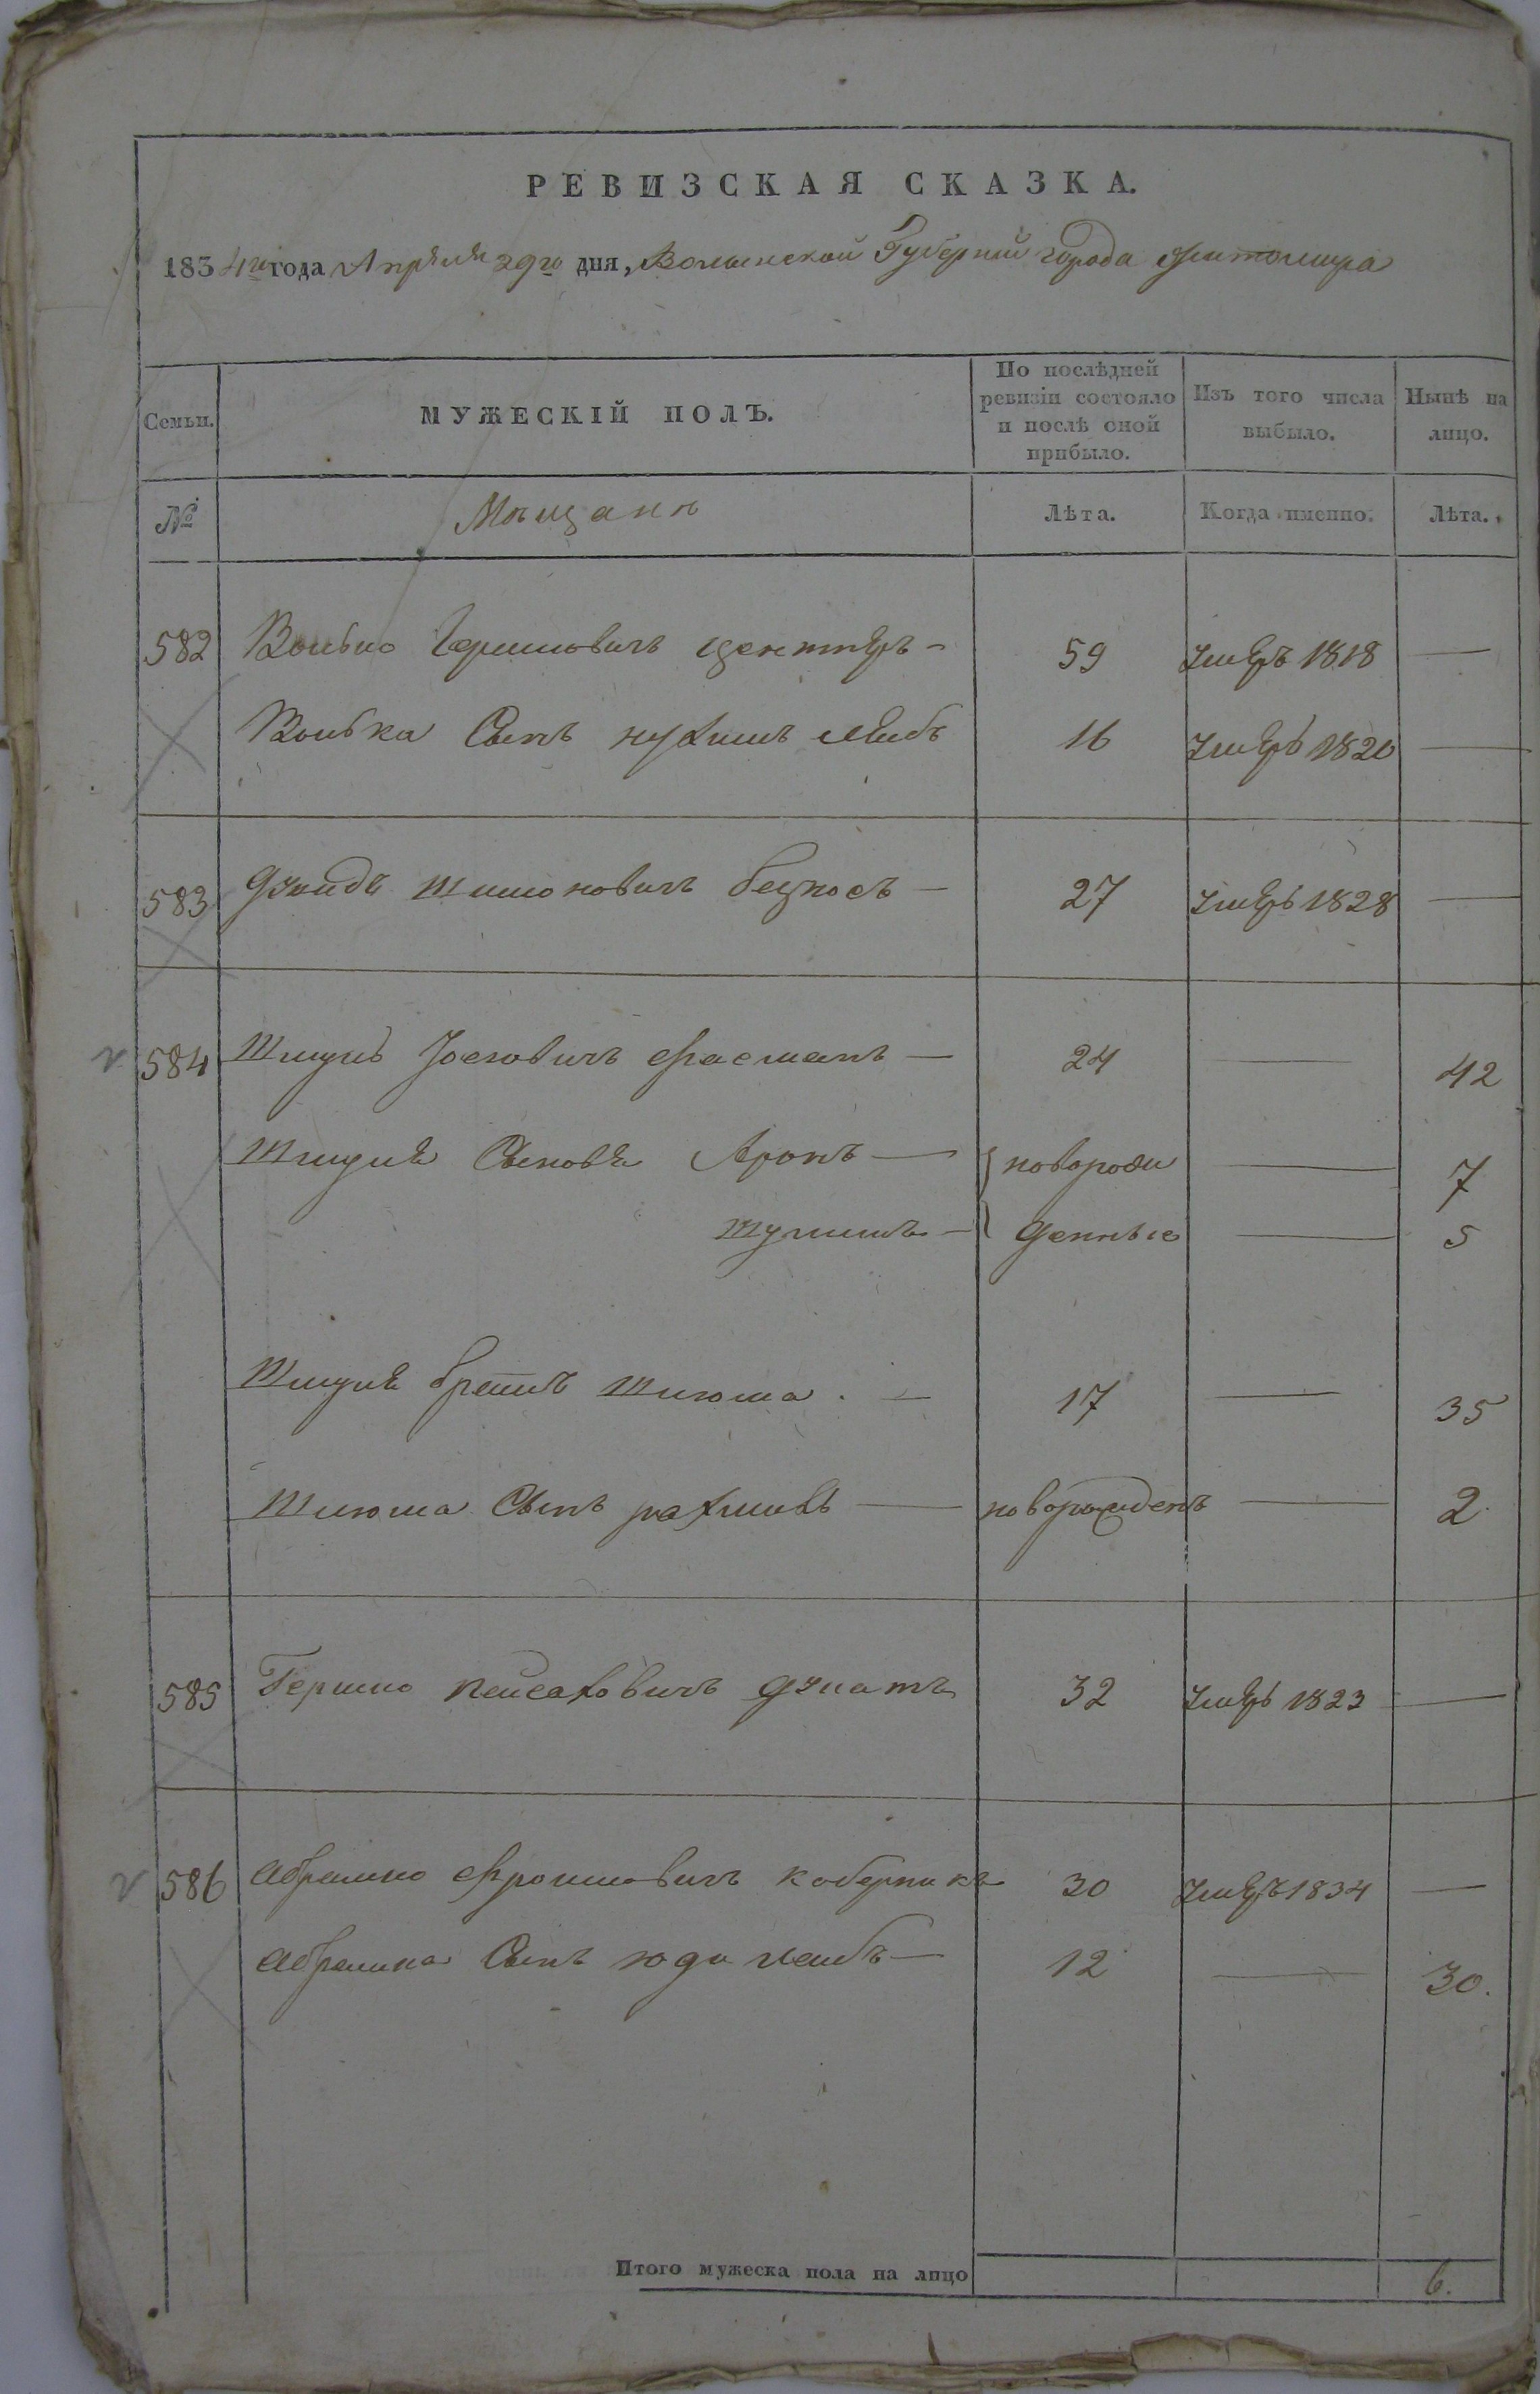 РЕВИЗСКАЯ СКАЗКА.
1834го года Апреля 29го дня, Волынской Губернии города Житомира
Семьи.
МУЖЕСКІЙ ПОЛЪ.
По послѣдней ревизіи состояло и послѣ оной прибыло.
Изъ того числа выбыло.
Нынѣ на лицо.
№
Мѣщанъ
Лѣта.
Когда именно.
Лѣта.
582 Волько Гершковичъ 59 умеръ 1818 —
Волька Сынъ нухимъ лейбъ 16 умеръ 1820 —
583 Дувидъ Шимоновичъ 27 умеръ 1828 —
584 Шмуль Іосковичъ Фасманъ — 24 — 42
Шмуля Сыновя Аронъ — новорож — 7
— денные — 5
Шмуля братъ Шлиома — 17 — 35
Шлиома Сынъ рахмиль — новорожденъ — 2
585 Гершко Пейсаховичъ 32 умеръ 1823 —
586 Абрамко Фроимовичъ коберникъ 30 умеръ 1834 —
Абрамка Сынъ юда лейбъ — 12 — 30.
Итого мужеска пола на лицо 6.